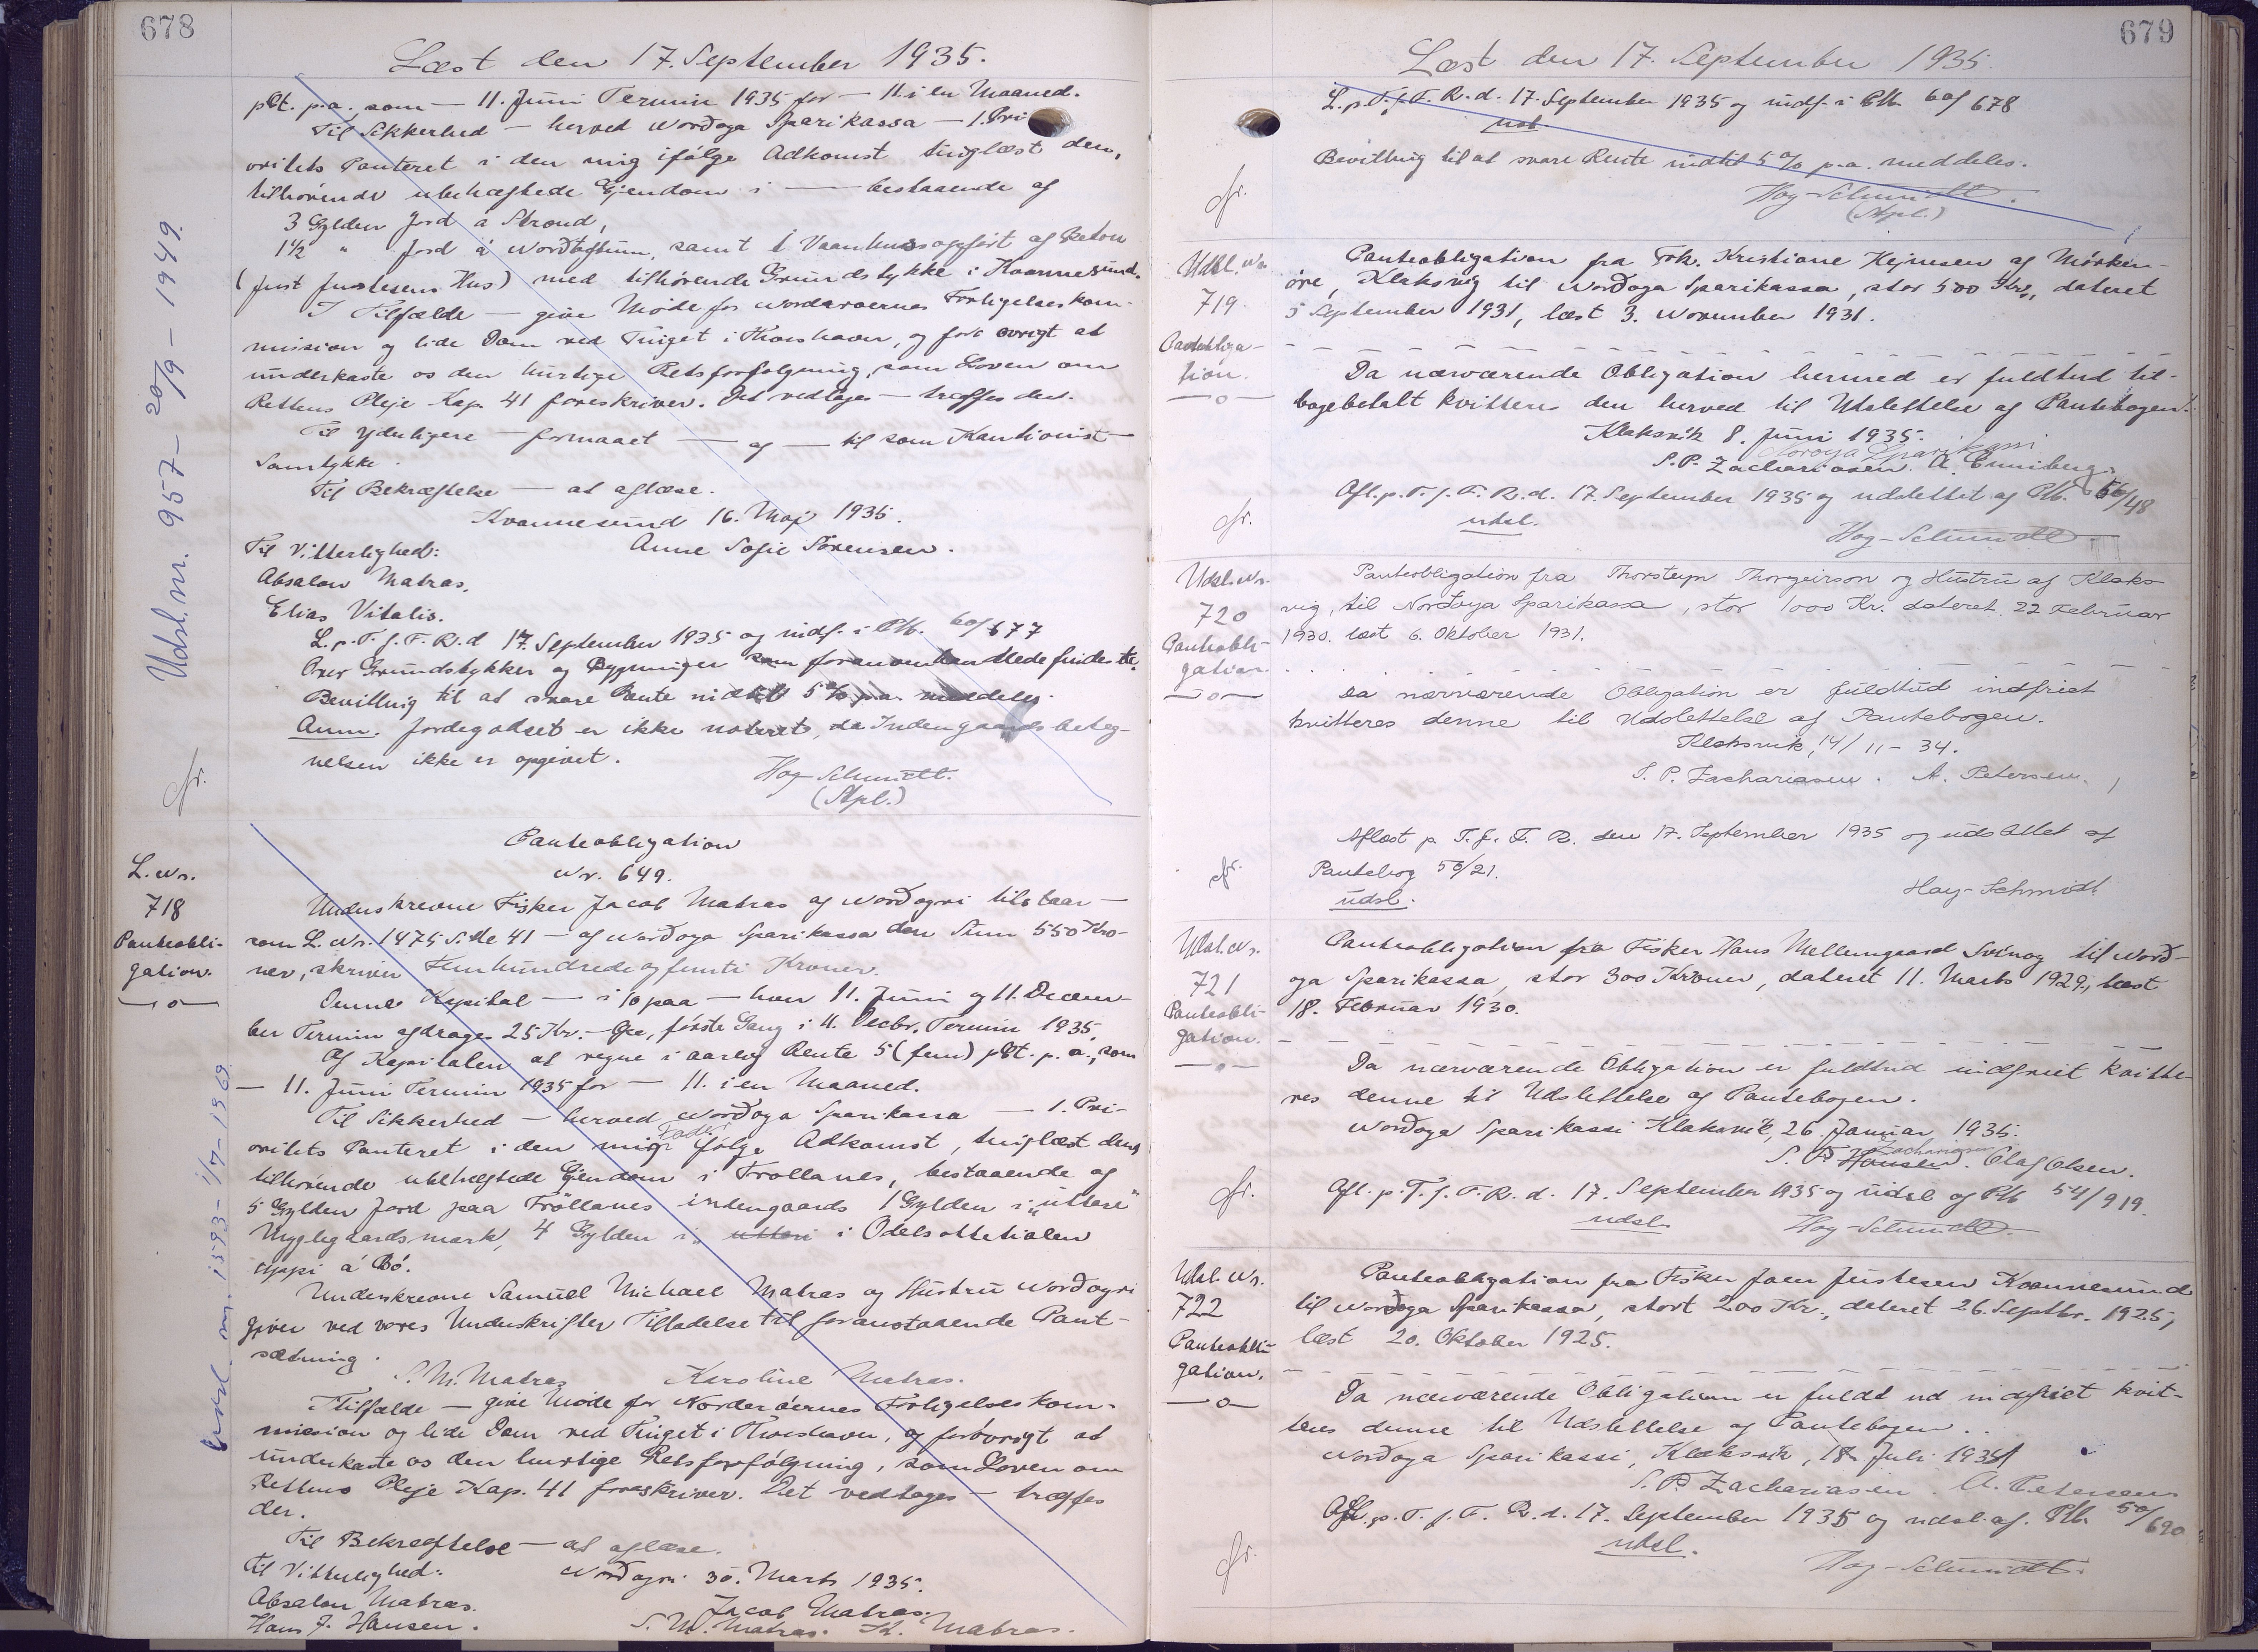 678
Læst den 17. September 1935.
pCt. p.a. som — 11. Juni Termin 1935 for — 11. i en Maaned.
Til Sikkerhed — herved Norðoya Sparikassa — 1. Pri
oritets Panteret i den mig ifölge Adkomst tinglæst den,
tilhörende ubehæftede Ejendom i — bestaaende af
3 Gylden Jord á Strond,
1½ " Jord á Norðtoftum, samt 1 Vaanhus opfört af Beton
(Just Justesens Hus) med tilhörende Grundstykke i Kvannesund.
I Tilfælde — give Möde for Norderöernes Forligelseskom-
mission og lide Dom ved Tinget i Thorshavn, og for övrigt at
underkaste os den hurtige Retsforfölgning, som Loven om
Rettens Pleje Kap. 41 foreskriver. Det vedtages — træffes der.
Til yderligere — formaaet — og — til som Kautionist —
Samtykke.
Til Bekræftelse — at aflæse.
Kvannesund 16. Maj 1935.
Til Vitterlighed: Anne Sofie Sörensen.
Absalon Matras.
Elias Vitalis.
L. p. T. f. F. R. d. 17. September 1935 og indf. i Pb. 60/677
Over Grundstykker og Bygninger som foranomhandlede findes
Bevilling til at svare Rente indtil 5% p.a. meddeles.
Anm. Jordegodset er ikke noteret, da Indengaardsbeteg-
nelsen ikke er opgivet.
Hoy-Schmidt.
(Stpl.)
Udsl. nr. 957 - 20/9 - 1949.
L. Nr.
718
Panteobli-
gation.
—o—
Panteobligation
Nr. 649.
Underskrevne Fisker Jacob Matras af Norðoyri tilstaar —
som L. Nr. 1475 Side 41 — af Norðoya Sparikassa den Sum 550 Kro-
ner, skriver Femhundrede og femti Kroner.
Denne Kapital — i % paa — hver 11. Juni og 11. Decem-
ber Termin afdrages 25 Kr. — Öre, förste Gang i 11. Decbr. Termin 1935.
Af Kapitalen at regne i aarlig Rente 5 (fem) pCt. p. a., som
— 11. Juni Termin 1935 for — 11. i en Maaned.
Til Sikkerhed — herved Norðoya Sparikassa — 1. Pri-
oritets Panteret i den mig ifölge Adkomst, tinglæst den,
tilhörende ubehæftede Ejendom i Tröllanes, bestaaende af
5 Gylden Jord paa Tröllanes indengaards 1 Gylden i „uttara"
Myglegaardsmark, 4 Gylden i „uttari i Odelsattetialen
uppi á Bö.
Underskrevne Samuel Michael Matras og Hustru Norðoyri
giver ved vores Underskrifter Tilladelse til foranstaaende Pant-
sætning.
S. M. Matras Karoline Matras.
I Tilfælde — give Möde for Norderöernes Forligelseskom-
mission og lide Dom ved Tinget i Thorshavn, og forövrigt at
underkaste os den hurtige Retsforfölgning, som Loven om
Rettens Pleje Kap. 41 foreskriver. Det vedtages — træffes
der.
Til Bekræftelse — at aflæse.
Til Vitterlighed: Norðoyri 30. Marts 1935.
Absalon Matras. Jacob Matras.
Hans J. Hansen. S. M. Matras. K. Matras.
Udsl. nr. 1593 - 1/7 - 1969
679
Læst den 17. September 1935.
L. p. T. f. F. R. d. 17. September 1935 og indf. i Pb. 60/678
Bevilling til at svare Rente indtil 5% p.a. meddeles.
Hoy-Schmidt.
(Stpl.)
Udsl. Nr.
719.
Panteobliga-
tion.
—o—
Panteobligation fra Frk. Kristiane Hejnesen af Mörken-
öre, Klaksvig til Norðoya Sparikassa, stor 500 Kr., dateret
5 September 1931, læst 3. November 1931.
Da nærværende Obligation hermed er fuldtud til-
bagebetalt kvitteres den herved til Udslettelse af Pantebogen.
Klaksvik 8. Juni 1935.
Norðoya Sparikassi
S. P. Zachariasen. A.
Afl. p. T. f. F. R. d. 17. September 1935 og udslettet af Pb. 56/48
udsl.
Hoy-Schmidt
Udsl. Nr.
720
Panteobli-
gation.
—o—
Panteobligation fra Thorsteyn Thorgeirson og Hustru af Klaks-
vig, til Norðoya Sparikassa, stor 1000 Kr. dateret 22 Februar
1930. læst 6. Oktober 1931.
Da nærværende Obligation er fuldtud indfriet
kvitteres denne til Udslettelse af Pantebogen.
Klaksvik, 14/11-34.
S. P. Zachariasen. A. Petersen.
Aflæst p. T. f. F. R. den 17. September 1935 og udslettet af
Pantebog 56/21.
udsl.
Hoy-Schmidt
Udsl. Nr.
721
Panteobli-
gation.
—o—
Panteobligation fra Fisker Hans Mellemgaard Svinoy til Norð-
oya Sparikassa, stor 300 Kroner, dateret 11. Marts 1929, læst
18. Februar 1930.
Da nærværende Obligation er fuldtud indfriet kvitte-
res denne til Udslettelse af Pantebogen.
Norðoya Sparikassi Klaksvik, 26. Januar 1935.
S. P. Hansen Zachariasen. Olaf Olsen.
Afl. p. T. f. F. R. d. 17. September 1935 og udsl. af Pb 54/919.
udsl.
Hoy-Schmidt
Udsl. Nr.
722
Panteobli-
gation.
—o—
Panteobligation fra Fisker Joen Justesen Kvannesund
til Norðoya Sparikassa, stort 200 Kr., dateret 26. Septbr. 1925,
læst 20. Oktober 1925.
Da nærværende Obligation er fuldt ud indfriet kvit-
teres denne til Udslettelse af Pantebogen.
Norðoya Sparikassi, Klaksvik, 18. Juli 1934
S. P. Zachariasen. A. Petersen
Afl. p. T. f. F. R. d. 17. September 1935 og udsl. af. Pb. 50/690
udsl.
Hoy-Schmidt.